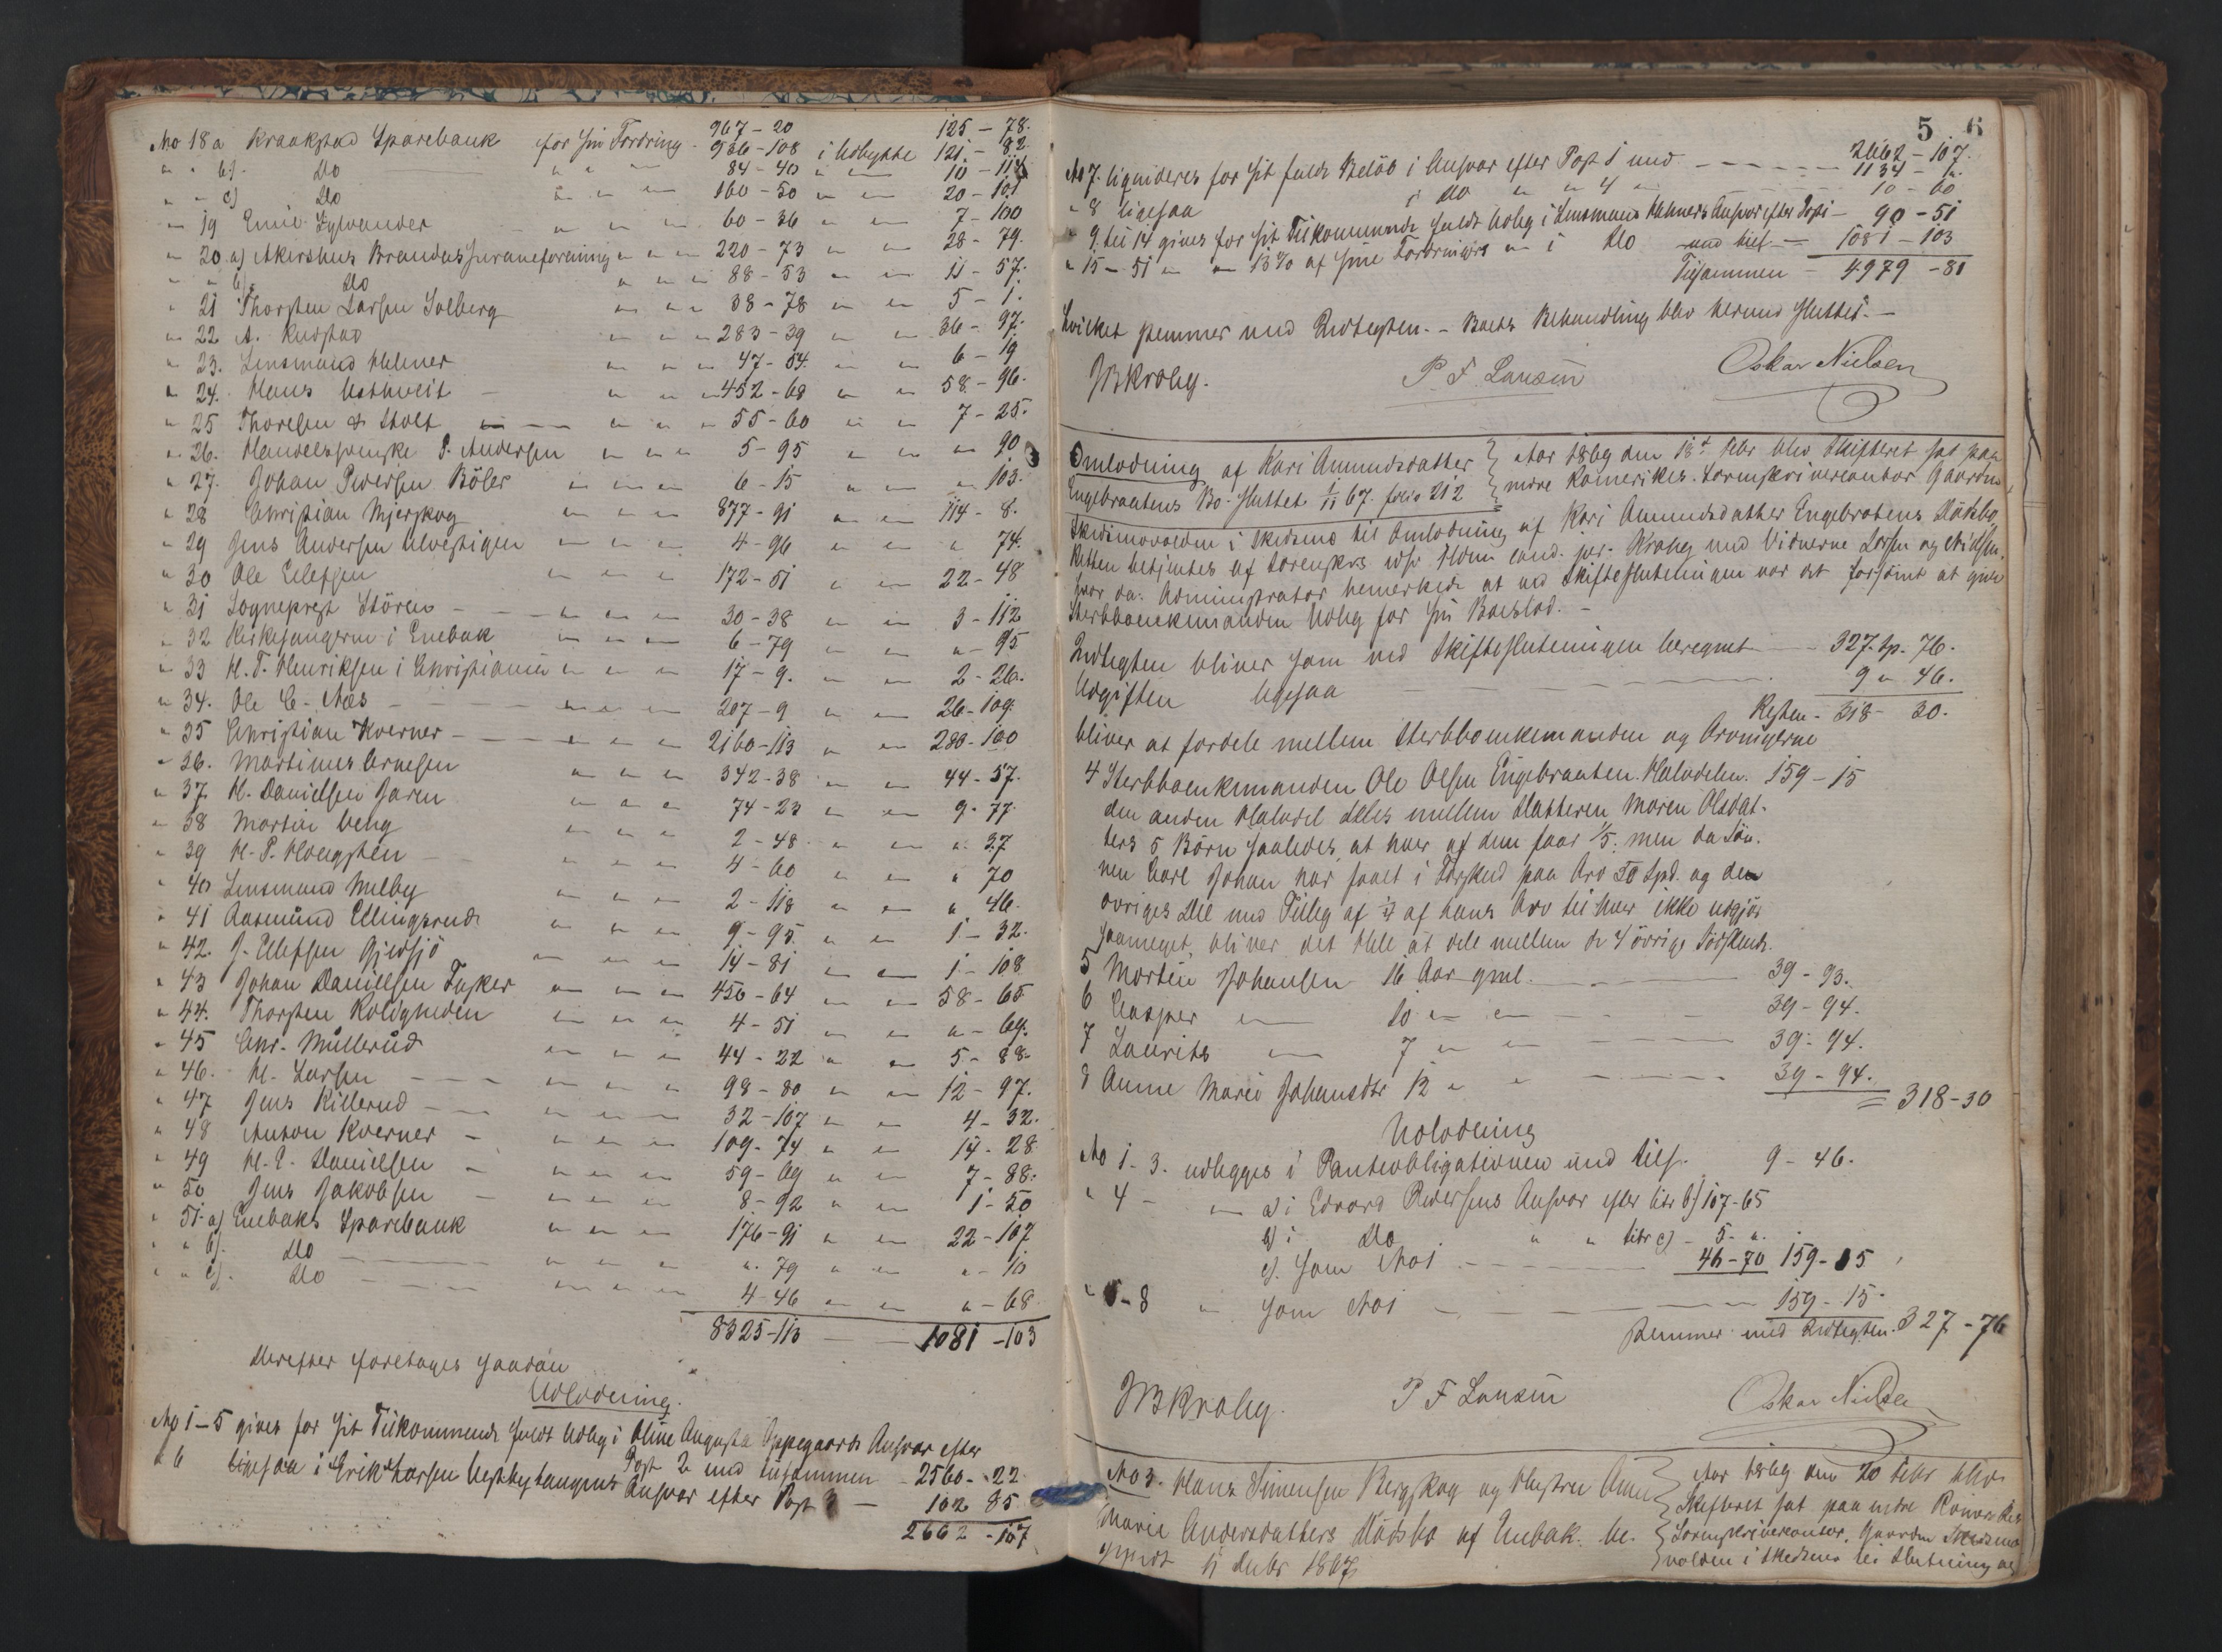 967 - 20 125 - 78.
No 18 a Kraakstad Sparebank for sin Fordring - 936 - 108 i Udbytte 121 - 82.
" " b). Do " " " 84 - 40 " " 10 - 118
" " c) Do " " " 160 - 50 " " 20 - 101
" 19 Emil Sylvander " " " 60 - 36 " " 7 - 100
" 20 a) Akershus Brandassuranceforening " " " 220 - 73 " " 28 - 79.
" " b). Do " " " 88 - 53 " " 11 - 57.
" 21 Thorsten Larsen Solberg " " " 38 - 78 " " 5 - 1.
" 22 A. Rustad " " " 283 - 39 " " 36 - 97.
" 23. Lensmand Hübner " " " 47 - 54. " " 6 - 19
" 24. Hans Usthveit " " " 452 - 68 " " 58 - 96.
" 25 Thoresen & Holt " " " 55 - 60 " " 7 - 25.
" 26. Handelsbetjent P. Andersen " " " 5 - 95 " " " 90
" 27. Johan Pedersen Böler " " " 6 - 15 " " " 103.
" 28 Christian Mjerskog " " " 877 - 91 " " 114 - 8.
" 29 Jens Andersen Ulvestigen " " " 4 - 96 " " " 74.
" 30 Ole Ellefsen " " " 172 - 51 " " 22 - 48
" 31 Sogneprest Stören " " " 30 - 38 " " 3 - 112
" 32 Kirkesangeren i Enebak " " " 6 - 79 " " " - 95
" 33 H. T. Henriksen i Christiania " " " 17 - 9. " " 2 - 26.
" 34. Ole C. Næs " " " 207 - 9 " " 26 - 109.
" 35 Christian Kverner " " " 2160 - 113 " " 280 - 100
" 36. Martinus Arnesen " " " 342 - 38 " " 44 - 57.
" 37 H. Danielsen Garen " " " 74 - 23 " " 9 - 77.
" 38 Martin Veng " " " 2 - 48 " " " 37
" 39 H. P. Hougsten " " " 4 - 60 " " " 70
" 40 Lensmand Melby " " " 2 - 118 " " " 46.
" 41 Aasmund Ellingsrud " " " 9 - 95. " " 1 - 32.
" 42. J. Ellefsen Gjedsjö " " " 14 - 81 " " 1 - 108
" 43 Johan Danielsen Tusker " " " 450 - 64 " " 58 - 65
" 44. Thorsten Koldgruden " " " 4 - 51 " " " - 69.
" 45 Chr. Müllerud " " " 44 - 22 " " 5 - 88.
" 46. H. Larsen " " " 98 - 80 " " 12 - 97.
" 47 Jens Killerud " " " 32 - 107 " " 4 - 32.
" 48 Anton Kverner " " " 109 - 74 " " 14 - 28
" 49 H. E. Danielsen " " " 59 - 69 " " 7 - 88.
" 50 Jens Jakobsen " " " 8 - 92 " " 1 - 50
" 51 a) Enebaks Sparebank " " " 176 - 91 " " 22 - 107
" " b). Do " " " ". 79 " " " - 10
" " c). Do " " " 4 - 46 " " " - 68.
8325 - 113 1081 - 103
Derefter foretoges saadan
Udlodning.
No 1 - 5 gives for sit Tilkommende fuldt Udlæg i Oline Augusta Oppegaards Ansvar efter
Post 2 med tilsammen - 2560 - 22
" 6 ligesaa i Erik Larsen Vestbystangens Ansvar efter Post 3 - 102 85
2662 - 107
5 6
2662 - 107.
No 7. liquideres for sit fulde Beløb i Ansvar efter Post 1 med - - - 1134 - ".
" 8 ligesaa i Do " " 4 " 10 - 60
" 9 til 14 gives for sit Tilkommende fuldt Udlæg i Lensmand Hübners Ansvar efter Post 1 - 90 - 51
" 15 - 51 " " 13% af sine Fordringer " i Do med tils. - 1081 - 103
Tilsammen - 4979 - 81
hvilket stemmer med Indtegten. - Boets Behandling blev hermed sluttet. -
JBKrohg. P. F. Lansen Oskar Nielsen
Omlodning af Kari Amundsdatter Aar 1869 den 18de Febr blev Skifteret sat paa
Engebraatens Bo. sluttet 1/11 67. folio 212 nedre Romerikes Sorenskrivercontor Gaarden
Skedsmovolden i Skedsmo til Omlodning af Kari Amundsdatter Engebratens Dödsbo
Retten betjentes af Sorenskr. ved Hdm cand. jur. Krohg med Vidnerne Larsen og Nielsen.
hvor da. Administrator bemerkede at ved Skifteslutningen var det forsömt at give
Sterbboenkemanden Udlæg for sin Boeslod. -
Indtegten bliver som ved Skifteslutningen beregnet - 327. Sp. 76.
Udgiften ligesaa - 9 " 46.
Resten - 318 - 30.
bliver at fordele mellem Sterbboenkemanden og Arvingerne
4 Sterbboenkemanden Ole Olsen Engebraaten. Halvdelen. 159 - 15
den anden Halvdel deles mellem Datteren Maren Olsdat-
ters 5 Börn saaledes, at hver af dem faar 1/5. men da Sön-
nen Carl Johan har faaet i Forskud paa Arv 50 Spd. og den
övriges Del med Tillæg af 1/4 af hans Arv til hver ikke udgjör
saameget, bliver det Hele at dele mellem de 4 övrige Södskende.
5 Martin Johansen 16 Aar gml. - 39 - 93.
6 Casper " 10 " " - 39 - 94.
7 Laurits " 7 " " - 39 - 94.
8 Anne Marie Johansdtr 12 " " - 39 - 94. = 318 - 30
Udlodning
No 1 - 3. udlegges i Panteobligationen med tils. 9 - 46.
" 4 - " a) i Edvard Pedersens Ansvar efter litr b) 107 - 65
b) i Do " " litr c) - 5 - ".
c). som No 1 - 46 - 70 159 - 15
" 5 - 8 " som No 1 - 159 - 15.
stemmer med Indtegten. 327 - 76
JBKrohg. P F Lansen Oskar Nielsen
No 3. Hans Simensen Bergskog og Hustru Anne Aar 1869 den 20 Febr blev
Marie Andersdatters Dödsbo af Enebak. be- Skifteret sat paa nedre Romerikes
gyndt 11 Decbr 1867 Sorenskriverkontor, Gaarden Skedsmo-
volden i Skedsmo til Slutning af